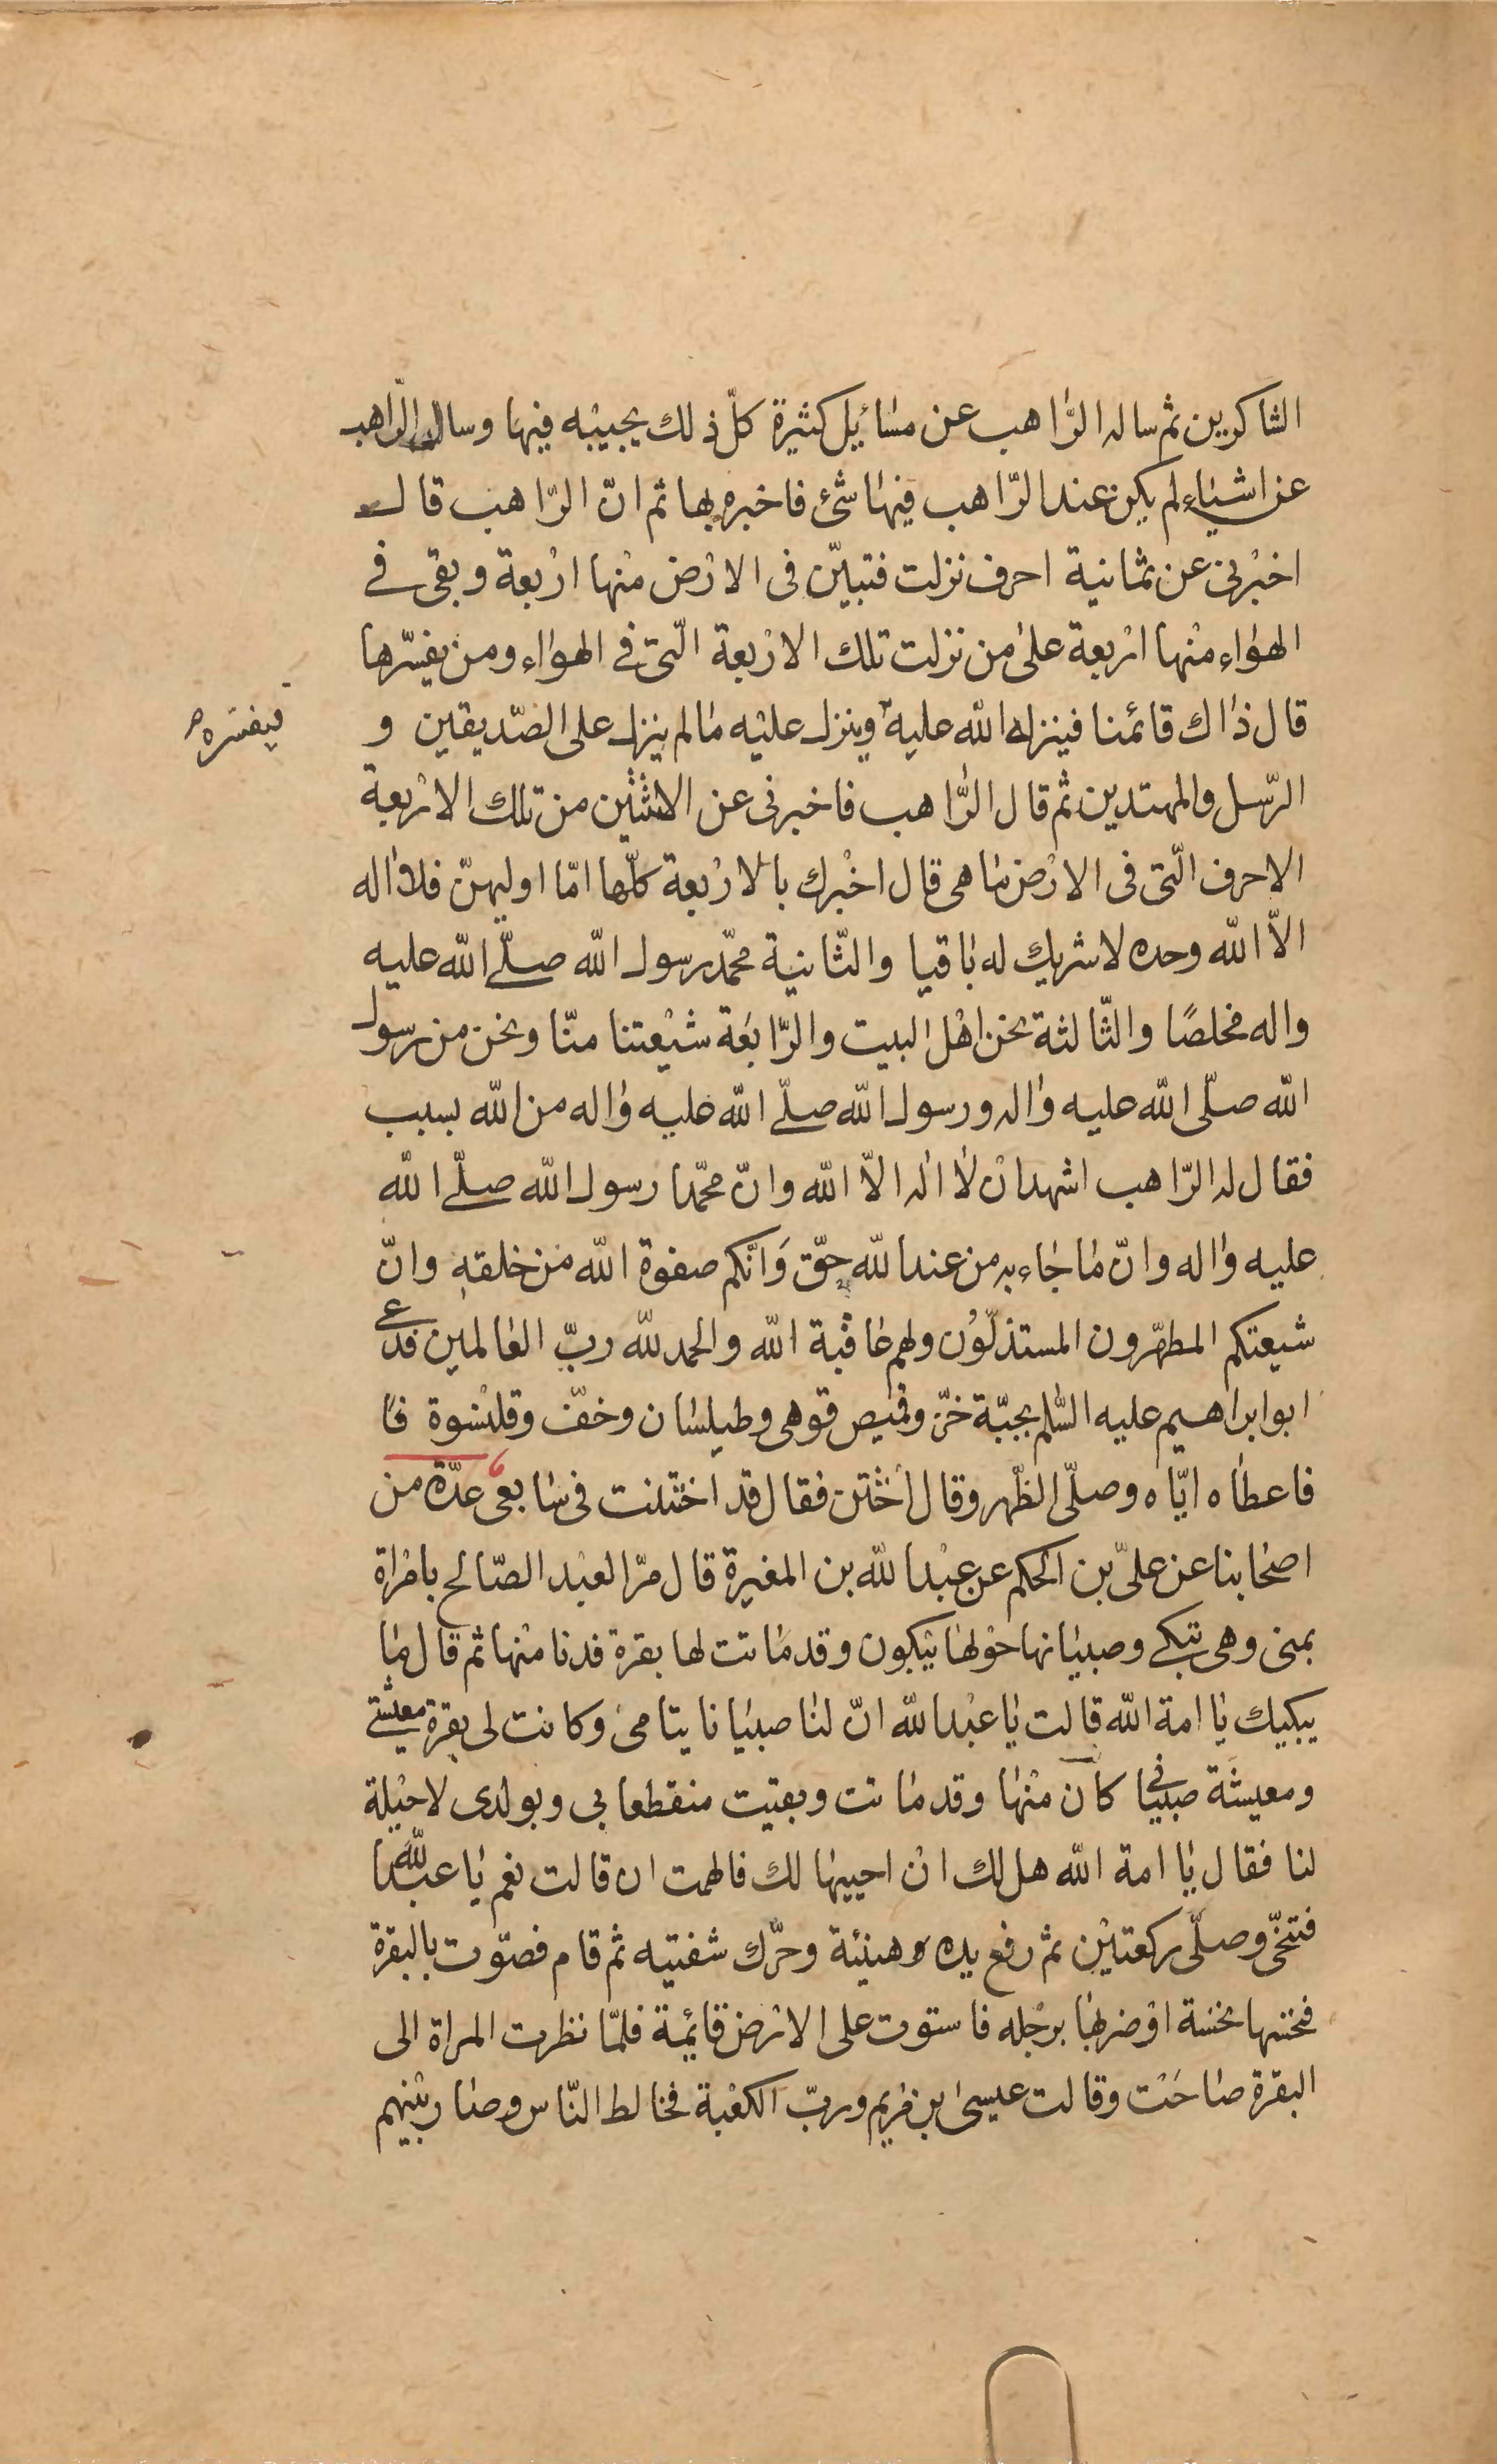 الشاكرين ثم ساله الرّاهب عن مسائيل كثيرة كلّ ذلك يجيبه فيها وسال الرّاهب
عن اشياء لم يكن عند الرّاهب فيها شئ فاخبره بها ثم انّ الرّاهب قال
اخبرنى عن ثمانية احرف نزلت فتبيّن فى الارض منها اربعة وبقى فے
الهواء منها اربعة على من نزلت تلك الاربعة الّتى فے الهواء ومن يفسّرها
قال ذاك قائمنا فينزله الله عليه وينزل عليه ما لم ينزل على الصّديقين و
فيفسّره
الرّسل والمهتدين ثم قال الرّاهب فاخبرنى عن الاثنين من تلك الاربعة
الاحرف الّتى فى الارض ما هى قال اخبرك بالاربعة كلّها امّا اوليهنّ فلا اله
الاّ الله وحده لا شريك له باقيا والثّانية محمّد رسول الله صلّے الله عليه
واله مخلصًا والثّالثة نحن اهل البيت والرّابعة شيعتنا منّا ونحن من رسول
الله صلّى الله عليه واله ورسول الله صلّے الله عليه واله من الله بسبب
فقال له الرّاهب اشهد ان لا اله الاّ الله وانّ محمّدا رسول الله صلّے الله
عليه واله وانّ ما جاء به من عند الله حقّ وَانّكم صفوة الله من خلقه وانّ
شيعتكم المطهّرون المستذلّوُن ولهم عاقبة الله والحمد لله ربّ العالمين فدعى
ابو ابراهيم عليه السّلم بجبّة خزّ وقميص قوهى وطيلسان وخفّ وقلنسوة فا
فاعطاه ايّاه وصلّى الظّهر وقال اختتن فقال قد اختتنت فى سابعى عدّة من
اصحابنا عن علىّ بن الحكم عن عبد الله بن المغيرة قال مرّ العبد الصّالح بامراة
بمنى وهى تبكے وصبيانها حولها يبكون وقد ماتت لها بقرة فدنا منها ثم قال ما
يبكيك يا امة الله قالت يا عبد الله انّ لنا صبيانا يتامى وكانت لى بقرة معيشتے
ومعيشة صبيانى كان منها وقد ماتت وبقيت منقطعا بى وبولدى لا حيلة
لنا فقال يا امة الله هل لك ان احييها لك فالهمت ان قالت نعم يا عبد الله
فتنحّى وصلّى ركعتين ثم رفع يده وهنيئة وحرّك شفتيه ثم قام فصوّت بالبقرة
فنخسها نخسة او ضربها برجله فاستوت على الارض قايمة فلمّا نظرت المراة الى
البقرة صاحَت وقالت عيسى ابن مريم وربّ الكعبة فخالط النّاس وصار بينهم